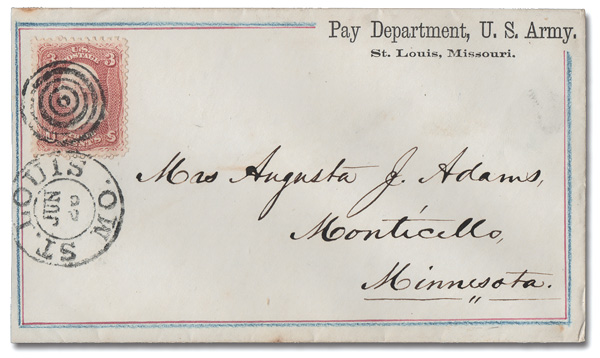 Pay Department, U. S. Army.
St. Louis, Missouri.
3 U.S. 3
POSTAGE
ST. LOUIS MO
JUN
Mrs Augusta J. Adams,
Monticello,
Minnesota.